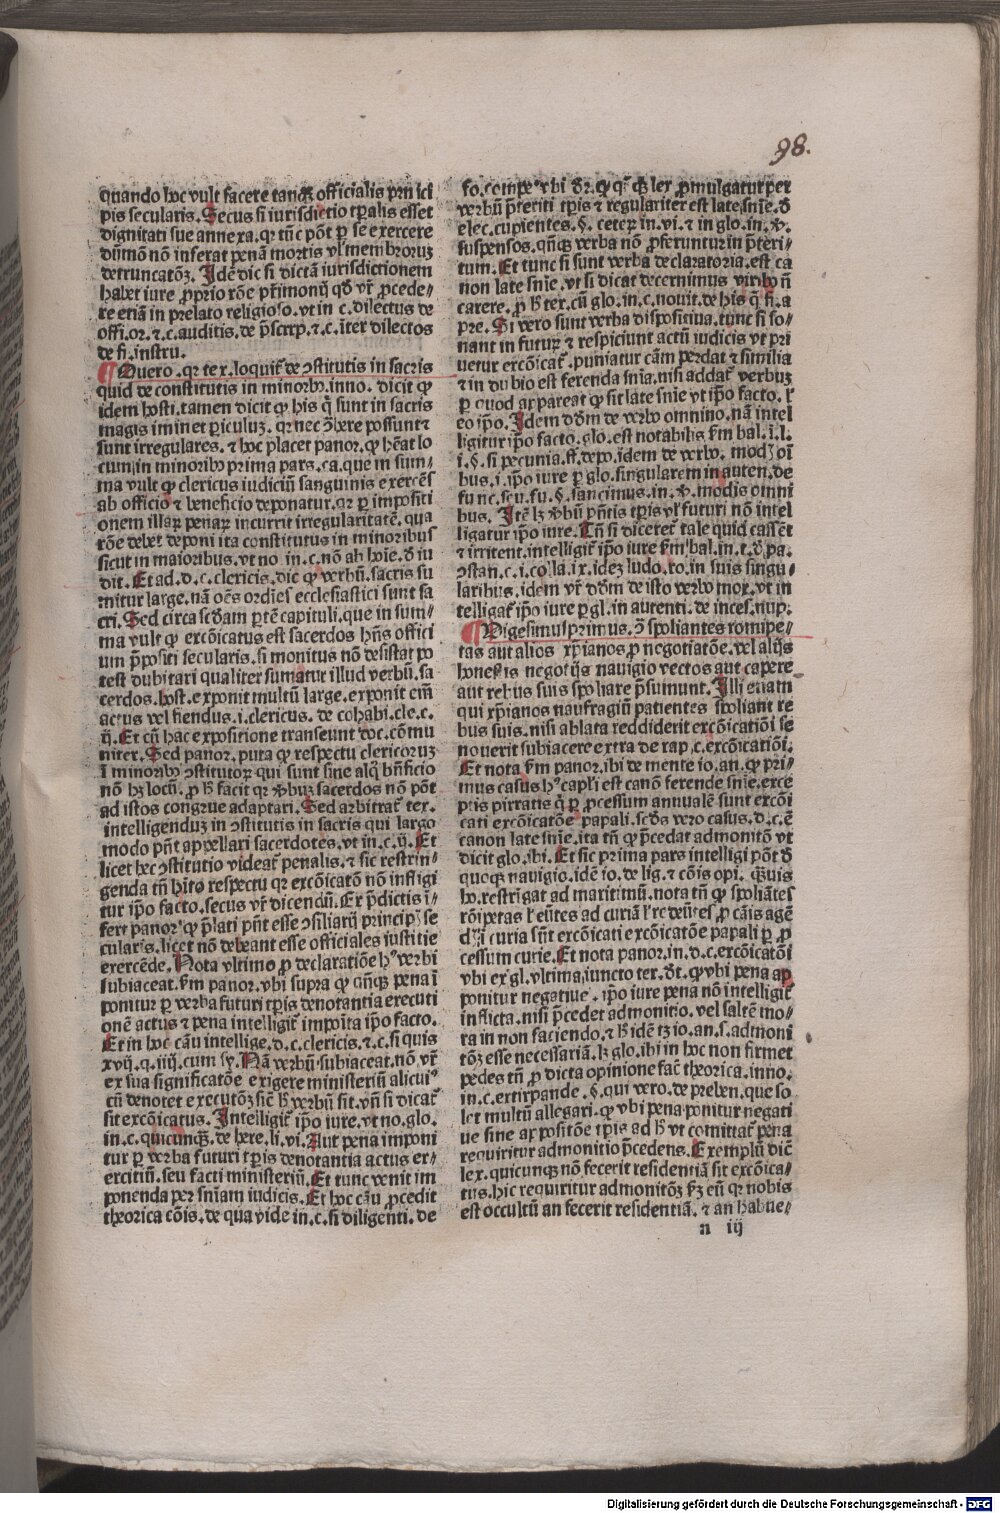 98.
quando hoc vult facere tanq̃ officialis prin ici
pis secularis. Secus si iurisdictio tp̄alis esset
dignitati sue annexa. qr tūc pōt ꝑ se exercere
dūmō nō inferat penā mortis vl' membroruʒ
detruncatōʒ. Idē dic si dictā iurisdictionem
habet iure ꝓprio rōe pr̄imonij qd̄ vr̄ ꝓcede⸗
re etiā in prelato religioso. vt in c. dilectus de
offi. or. ⁊ c. auditis. de p̄scrip. ⁊ c. iter dilectos
de fi. instru.
¶ Quero. qr tex. loquit̄ de ↄstitutis in sacris
quid de constitutis in minorib9. inno. dicit ꝙ
idem hosti. tamen dicit ꝙ his q̄ sunt in sacris
magis iminet ꝑiculuʒ. qr nec ↄ̄here possunt ⁊
sunt irregulares. ⁊ hoc placet panor. ꝙ hēat lo
cum in minorib9 prima pars. ca. que in sum⸗
ma vult ꝙ clericus iudiciū sanguinis exercēs
ab officio ⁊ beneficio deponatur. qr ꝑ impositi
onem illaꝝ penaꝝ incurrit irregularitatē. qua
rōe debet deponi ita constitutus in minoribus
sicut in maioribus. vt no. in. c. nō ab hoīe. d' iu
dit. Et ad. d. c. clericis. dic ꝙ verbū. sacris su
mitur large. nā oēs ordīes ecclesiastici sunt sa
cri. Sed circa scd̄am ꝑtē capituli. que in sum⸗
ma vult ꝙ excōicatus est sacerdos hn̄s offici
um p̄positi secularis. si monitus nō desistat po
test dubitari qualiter sumatur illud verbū. sa
cerdos. host. exponit multū large. exponit em̄
actus vel fiendus. i. clericus. de cohabi. cle. c.
ij. Et cū hac expositione transeunt doc. cōmu
niter. Sed panor. puta ꝙ respectu clericoruʒ
ī minorib9 ↄstitutoꝝ qui sunt sine alq̄ bn̄ficio
nō hʒ locū. ꝓ h' facit qr v̄buʒ sacerdos nō pōt
ad istos congrue adaptari. Sed arbitrat̄ tex.
intelligenduʒ in ↄstitutis in sacris qui largo
modo pn̄t appellari sacerdotes. vt in. c. ij. Et
licet hec ↄstitutio videat̄ penalis. ⁊ sic restrin⸗
genda tn̄ hīto respectu qr excōicatō nō infligi
tur ip̄o facto. secus vr̄ dicendū. Ex p̄dictis ī⸗
fert panor. ꝙ p̄lati pn̄t esse ↄsiliarij principi se
cularis. licet nō debeant esse officiales iustitie
exercēde. Nota vltimo ꝓ declaratiōe h9 verbi
subiaceat. ẜm panor. vbi supra ꝙ qn̄qꝫ pena ī
ponitur ꝑ verba futuri tꝑis denotantia executi
onē actus ⁊ pena intelligit̄ impoīta ip̄o facto.
Et in hoc cāu intellige. d. c. clericis. ⁊ c. si quis
xvij. q. iiij. cum sy. Nā verbū subiaceat. nō vr̄
ex sua significatōe exigere ministeriū alicui9
cū denotet executōʒ sic̄ h' verbū sit. vn̄ si dicat̄
sit excōicatus. Intelligit̄ ip̄o iure. vt no. glo.
in. c. quicunqꝫ. de here. li. vi. Aut pena imponi
tur ꝑ verba futuri tꝑis denotantia actus ex⸗
ercitiū. seu facti ministeriū. Et tunc venit im
ponenda per sn̄iam iudicis. Et hoc cāu ꝓcedit
theorica cōis. de qua vide in. c. si diligenti. de
fo. compe. vbi dr̄. ꝙ q̄ qꝫ lex ꝓmulgatur per
verbū p̄teriti tꝑis ⁊ regulariter est late sn̄ie. d'
elec. cupientes. §. ceteꝝ in. vi. ⁊ in glo. in. v̄.
suspensos. qn̄qꝫ verba nō ꝓferuntur in p̄teri⸗
tum. Et tunc si sunt verba declaratoria. est ca
non late sn̄ie. vt si dicat decernimus virib9 n̄
carere. ꝓ h' tex. cū glo. in. c. nouit. de his q̄ fi. a
pre. Si vero sunt verba dispositiua. tunc si so⸗
nant in futuꝝ ⁊ respiciunt actū iudicis vt pri
uetur excōicat̄. puniatur cām perdat ⁊ similia
⁊ in dubio est ferenda sn̄ia. nisi addat̄ verbuʒ
ꝑ quod appareat ꝙ sit late sn̄ie vt ip̄o facto. l'
eo ip̄o. Idem dd̄m de verbo omnino. nā intel
ligitur ip̄o facto. glo. est notabilis ẜm bal. ī. l.
i. §. si pecunia. ff. depo. idem de verbo. modʒ oī
bus. i. ip̄o iure ꝑ glo. singularem in auten. de
func. seu. fu. §. sancimus. in. v̄. modis omni
bus. Itē lʒ v̄bū pn̄tis tꝑis vl' futuri nō intel
ligatur ip̄o iure. Tn̄ si diceret tale quid cassēt
⁊ irritent. intelligit̄ ip̄o iure ẜm bal. in. t. d' pa.
ↄstan. c. i. colla. ix. ideʒ ludo. ro. in suis singu⸗
laribus. idem vr̄ dd̄m de isto verbo mox. vt in
telligat̄ ip̄o iure ꝑ gl. in autenti. de inces. nup.
¶ Uigesimusprimus. ↄ̄ spoliantes romipe⸗
tas aut alios xp̄ianos ꝓ negotiatōe. vel alijs
honestis negotijs nauigio vectos aut capere
aut rebus suis spoliare p̄sumunt. Illi etiam
qui xp̄ianos naufragiū patientes spoliant re
bus suis. nisi ablata reddiderit excōicatiōi se
nouerit subiacere extra de rap. c. excōicatiōi.
Et nota ẜm panor. ibi de mente io. an. ꝙ pri⸗
mus casus h9 capl'i est canō ferende sn̄ie. exce
ptis pirratis q̄ ꝑ ꝓcessum annualē sunt excōi
cati excōicatōe papali. scd̄s vero casus. d. c. ē
canon late sn̄ie. ita tn̄ ꝙ p̄cedat admonitō vt
dicit glo. ibi. Et sic prima pars intelligi pōt d'
quocꝫ nauigio. idē io. de lig. ⁊ cōis opi. Quis
ho. restrīgat ad maritimū. nota tn̄ ꝙ spoliātes
rōipetas l' eūtes ad curiā l' redeūtes ꝓ cāis agē
dis i curia sūt excōicati excōicatōe papali ꝑ ꝓ
cessum curie. Et nota panor. in. d. c. excōicatōi
vbi ex gl. vltima, iuncto tex. dt̄. ꝙ vbi pena ap
ponitur negatiue. ip̄o iure pena nō intelligit̄
inflicta. nisi p̄cedet admonitio. vel saltē mo⸗
ra in non faciendo, ⁊ h' idē tʒ io. an. s. admoni
tōʒ esse necessariā. lʒ glo. ibi in hoc non firmet
pedes tn̄ ꝓ dicta opinione fac̄ theorica. inno.
in. c. extirpande. §. qui vero. de preben. que so
let multū allegari. ꝙ vbi pena ponitur negati
ue sine apositōe tꝑis ad h' vt comittat̄ pena
requiritur admonitio p̄cedens. Exemplū dic̄
lex. quicunqꝫ nō fecerit residentiā sit excōica⸗
tus. hic requiritur admonitōʒ ẜʒ eū qr nobis
est occultū an fecerit residentiā. ⁊ an habue⸗
n iij
Digitalisierung gefördert durch die Deutsche Forschungsgemeinschaft - DFG